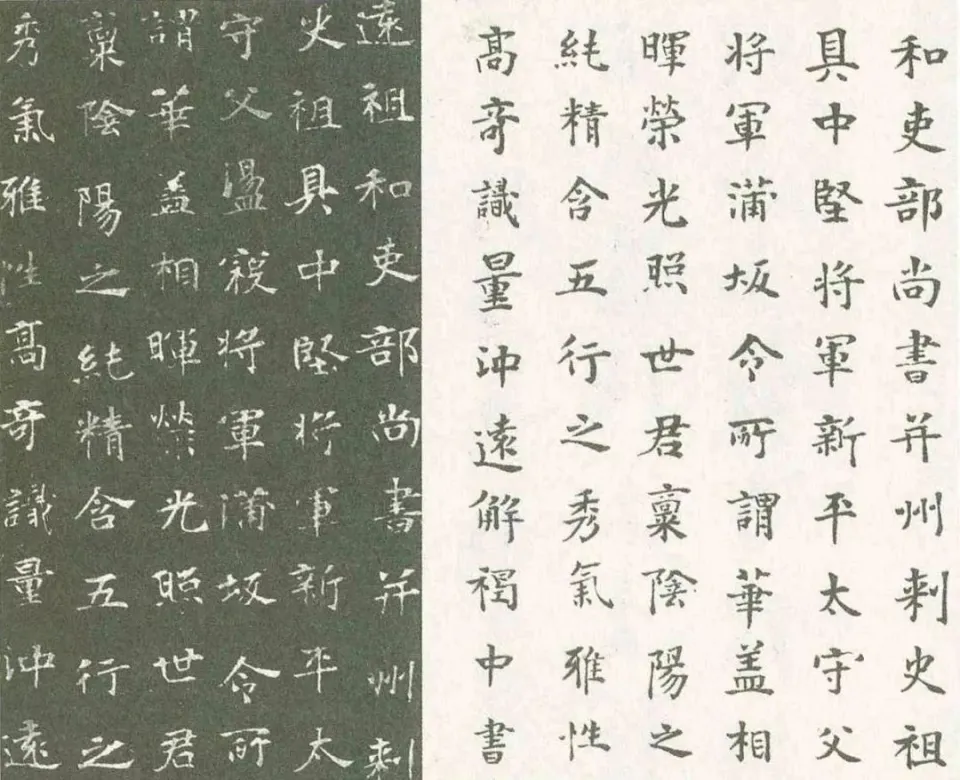 和吏部尚書并州刾史祖
具中堅將軍新平太守父
將軍蒲坂令所謂華盖相
暉榮光照世君稟陰陽之
純精含五行之秀氣雅性
高奇識量沖遠解褐中書
遠祖和吏部尚書并州刾
史祖具中堅將軍新平太
守父盪寇將軍蒲坂令所
謂華盖相暉榮光照世君
稟陰陽之純精含五行之
秀氣雅性高奇識量沖遠